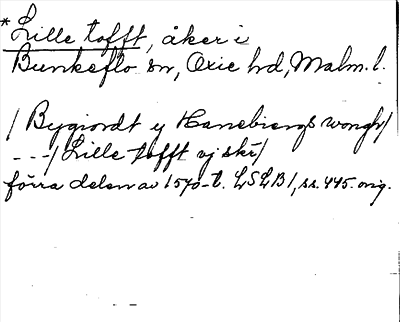 *Lille tofft, åker i
Bunkeflo sn, Oxie hd, Malm. l.
/ Bygiordt y Hanebiergs wongh/
---/ Lille tofft vj skr/
förra delen av 1570-t. LSLB1, ss. 445. orig.